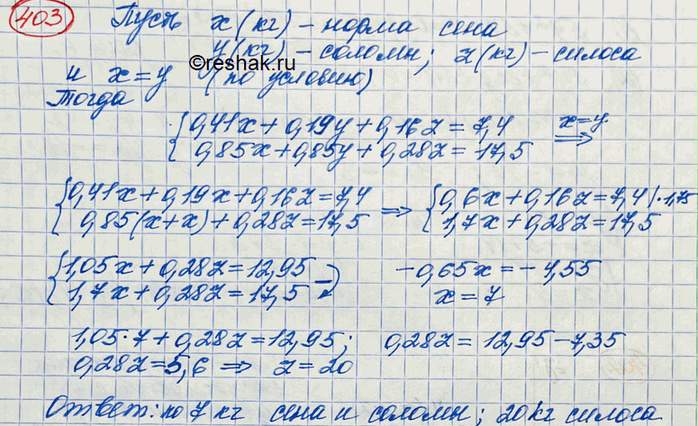 403 Пусть x (кг) – норма сена
y (кг) – соломы; z (кг) – силоса
и x = y (по условию)
©reshak.ru
Тогда
{0,41x + 0,19y + 0,16z = 7,4 x=y
{0,85x + 0,85y + 0,28z = 17,5 ⇒
{0,41x + 0,19x + 0,16z = 7,4 {0,6x + 0,16z = 7,4 | · 1,75
{0,85(x+x) + 0,28z = 17,5 ⇒ {1,7x + 0,28z = 17,5
{1,05x + 0,28z = 12,95 -0,65x = -4,55
{1,7x + 0,28z = 17,5 –) x = 7
1,05·7 + 0,28z = 12,95; 0,28z = 12,95 – 7,35
0,28z = 5,6 ⇒ z = 20
Ответ: по 7 кг сена и соломы; 20 кг силоса